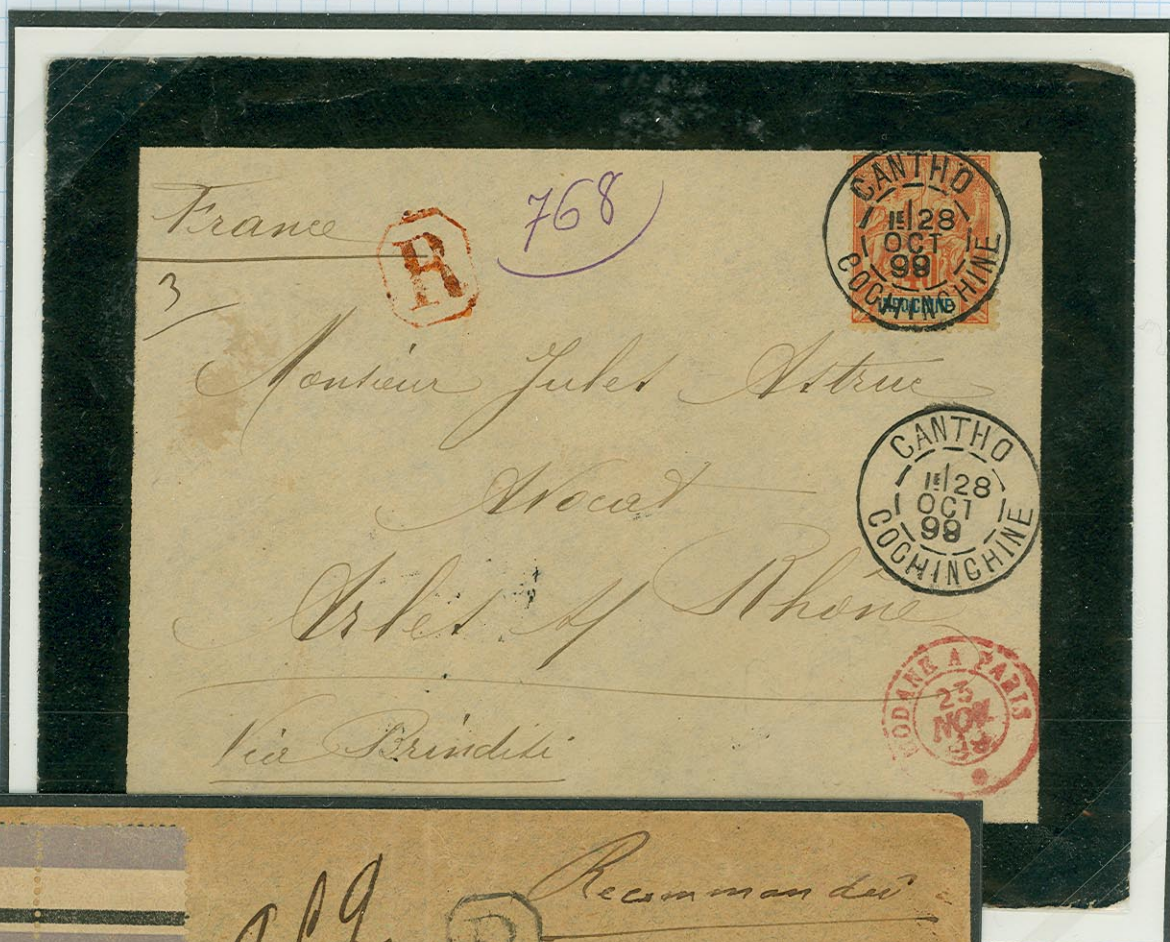 France
R
768
3
CANTHO
1E/28
OCT
99
COCHINCHINE
INDO-CHINE
Monsieur Jules Astruc
Avocat
CANTHO
1E/28
OCT
99
COCHINCHINE
Arles s/ Rhône
MODANE A PARIS
23
NOV
Via Brindisi
Recommandée
R